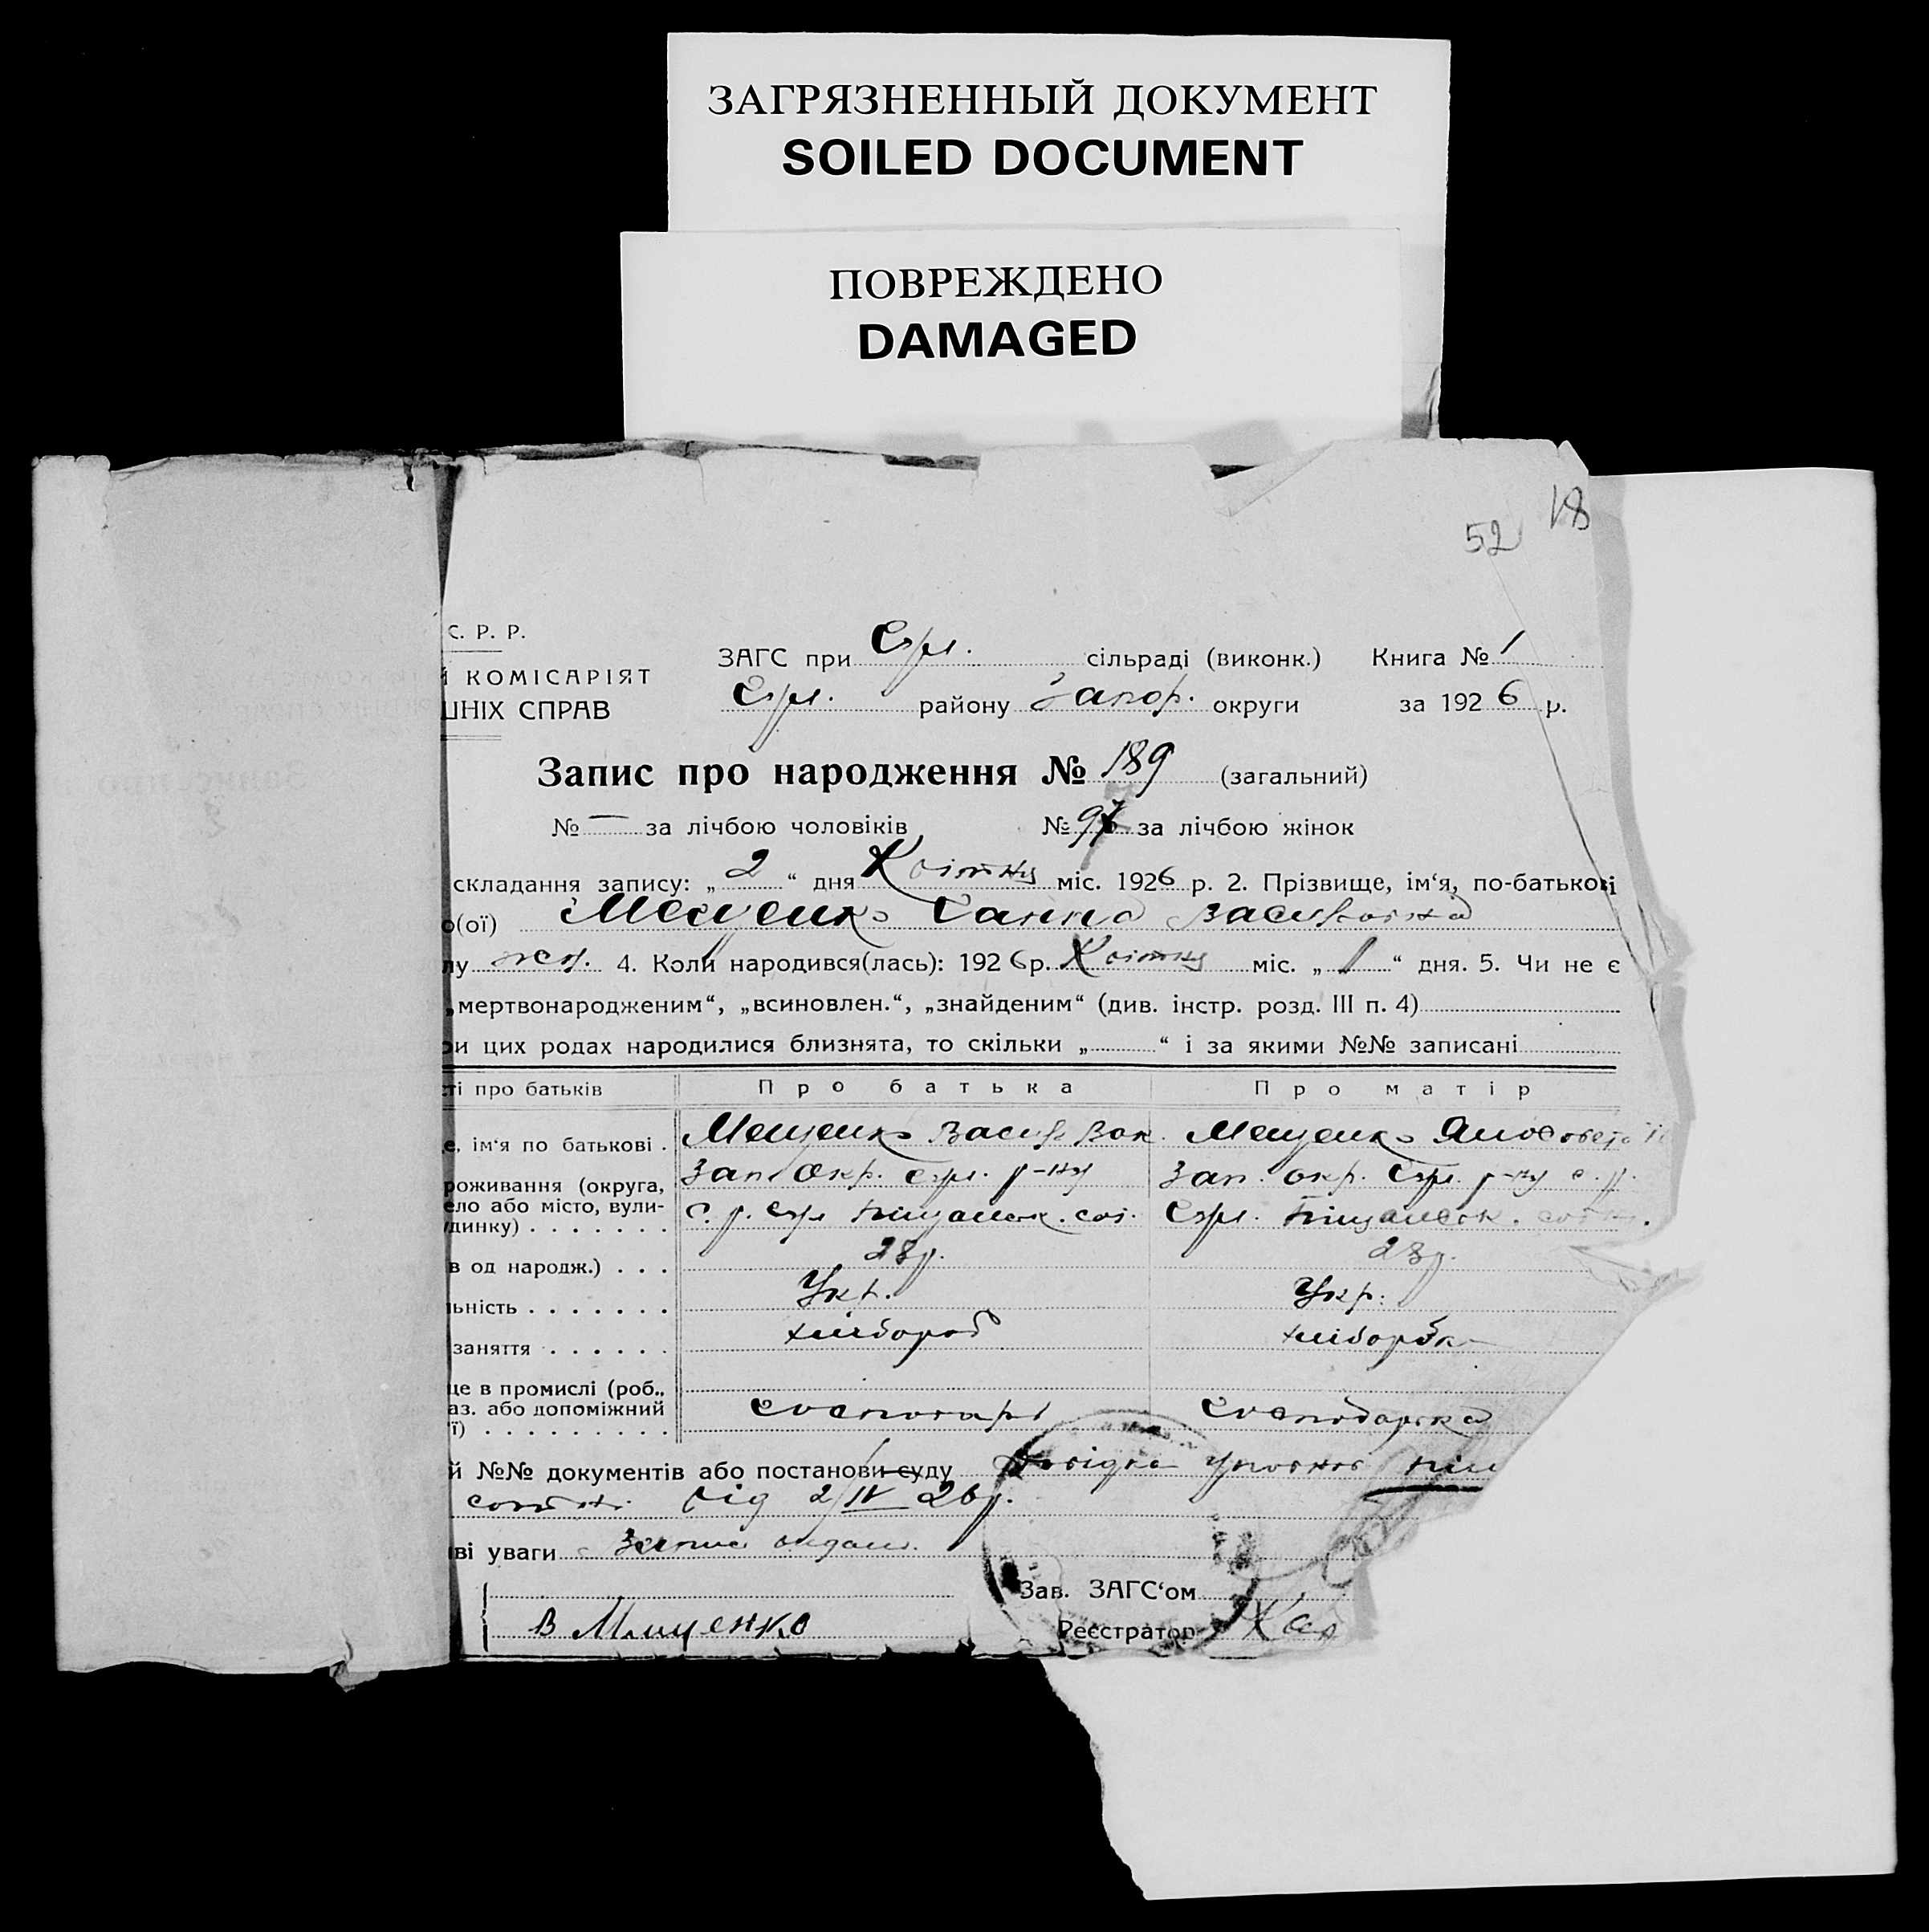 ЗАГРЯЗНЕННЫЙ ДОКУМЕНТ
SOILED DOCUMENT
ПОВРЕЖДЕНО
DAMAGED
52 18
С. Р. Р.
ЗАГС при сільраді (виконк.) Книга № 1
Й КОМІСАРІЯТ
ШНІХ СПРАВ
району Запор. округи за 1926 р.
Запис про народження № 189 (загальний)
№ — за лічбою чоловіків № 97 за лічбою жінок
складання запису: „2“ дня Квітня міс. 1926 р. 2. Прізвище, ім'я, по-батькові
о(ої) Мещенко Ганна Василівна
лу жін. 4. Коли народився(лась): 1926 р. Квітня міс. „1“ дня. 5. Чи не є
„мертвонародженим“, „всиновлен.“, „знайденим“ (див. інстр. розд. III п. 4)
ри цих родах народилися близнята, то скільки „ “ і за якими №№ записані
ті про батьків Про батька Про матір
е, ім'я по батькові . Мещенко Васил Мещенко
роживання (округа, Зап. Окр. р-ну Зап. окр. р-ну с. р.
ело або місто, вули-
динку) . . . . . . . с. р.
в од народж.) . . . 28 р. 28 р.
льність . . . . . . . Укр. Укр.
заняття . . . . . . хлібороб хліборобка
це в промислі (роб.,
аз. або допоміжний господарь господарка
ї) . . . . . . . . . .
й №№ документів або постанови суду Довідка
сотні від 2/IV 26 р.
ві уваги
Зав. ЗАГС'ом
В Мищенко Реєстратор